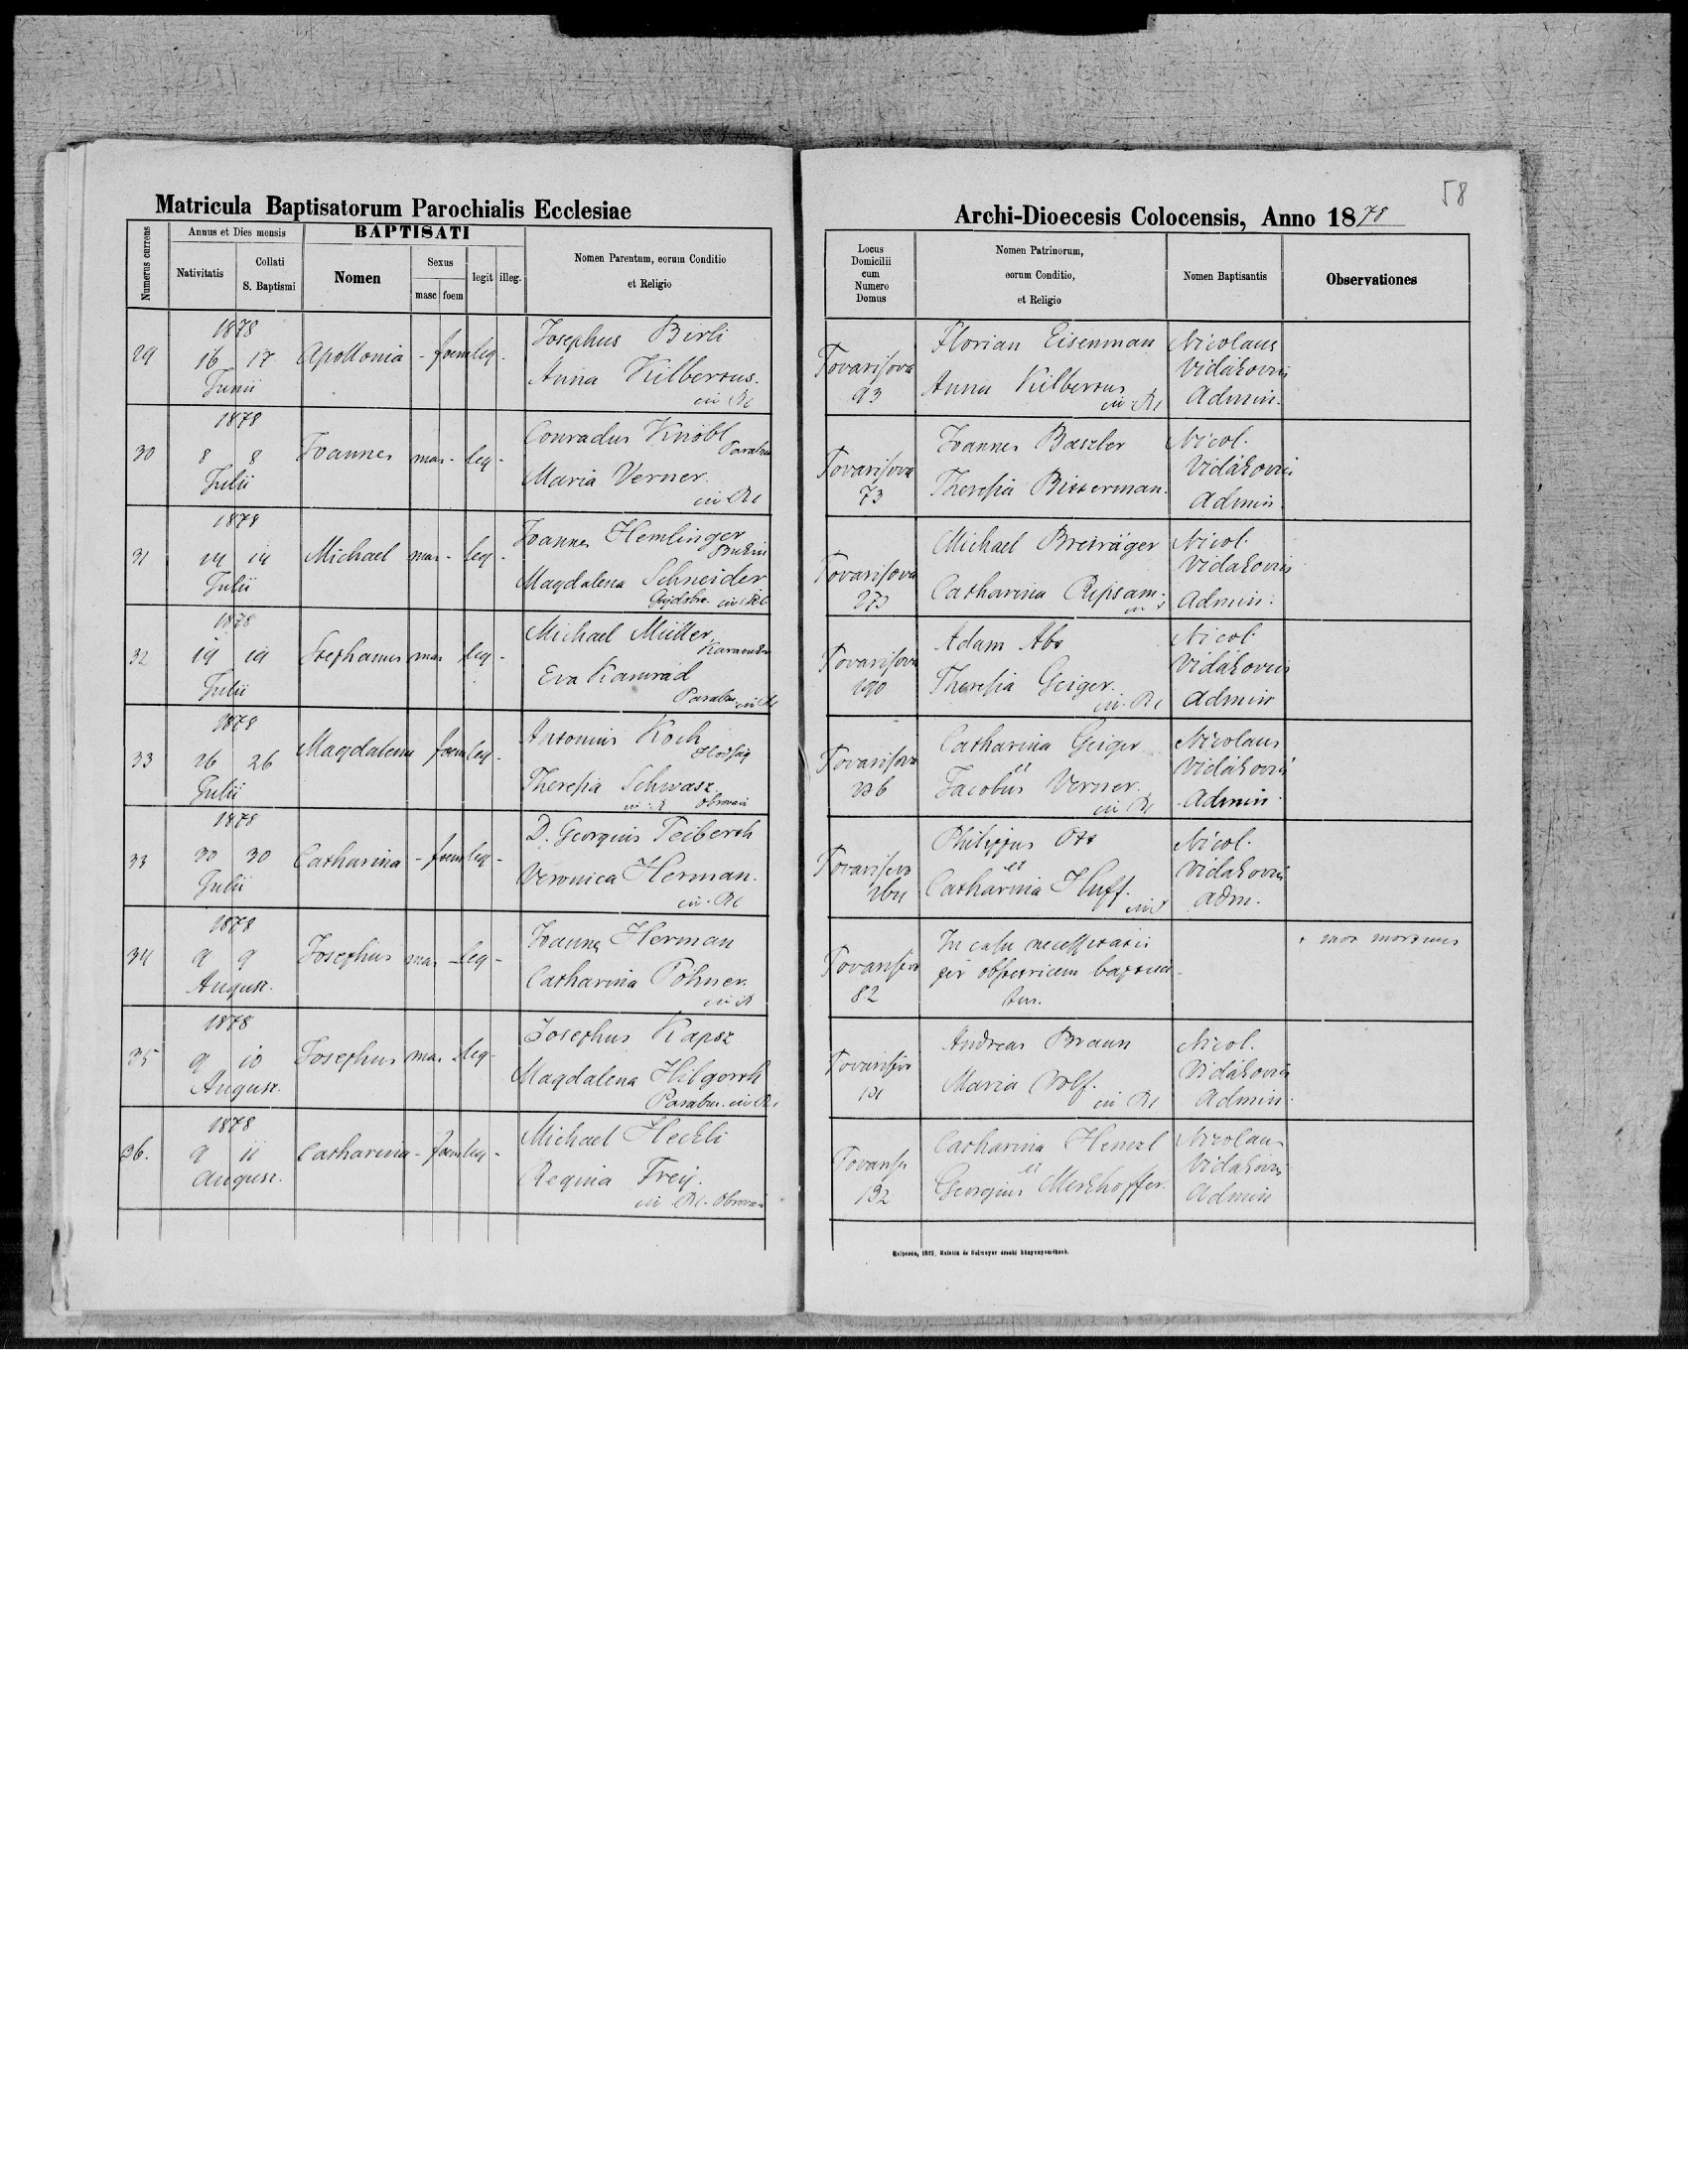 58
Matricula Baptisatorum Parochialis Ecclesiae
Archi-Dioecesis Colocensis, Anno 1878
Numerus currens
Annus et Dies mensis
Nativitatis
Collati
S. Baptismi
BAPTISATI
Nomen
Sexus
masc foem
legit illeg.
Nomen Parentum, eorum Conditio
et Religio
Locus
Domicilii
cum
Numero
Domus
Nomen Patrinorum,
eorum Conditio,
et Religio
Nomen Baptisantis
Observationes
29
1878
16 17
Junii
Apollonia - foem leg.
Josephus Birli
Anna Kilbertus.
Tovarisova
93
Florian Eisenman
Anna Kilbertus
Nicolaus
Vidákovis
Admin.
30
1878
8 8
Julii
Joannes mas - leg -
Conradus Knöbl
Maria Verner.
Tovarisova
73
Joannes Baszler
Theresia Bitterman.
Nicol.
Vidákovis
Admin
31
1878
14 14
Julii
Michael mas - leg -
Joannes Hemlinger
Magdalena Schneider
Tovarisova
273
Michael Breiträger
Catharina Ripsam.
Nicol.
Vidakovis
Admin.
32
1878
19 19
Julii
Stephanus mas leg -
Michael Müller
Eva Kamrád
Tovarisova
190
Adam Abt
Theresia Geiger.
Nicol.
Vidákovis
Admin
33
1878
26 26
Julii
Magdalena foem leg -
Antonius Koch
Hodsag
Theresia Schwarz
Obrovac
Tovarisova
Catharina Geiger
et
Jacobus Verner.
Nicolaus
Vidákovis
Admin.
33
1878
30 30
Julii
Catharina - foem leg -
D. Georgius Teiberth
Veronica Herman.
Tovarisova
Philippus Ott
et
Catharina Huff.
Nicol.
Vidakovis
adm.
34
1878
9 9
August.
Josephus mas - leg -
Joannes Herman
Catharina Pöhner.
Tovarisova
82
In casu necessitatis
per obstetricem baptisa-
tus.
+ mox mortuus
35
1878
9 10
August.
Josephus mas - leg -
Josephus Kapsz
Magdalena Hilgerth
Tovarisova
Andreas Braun
Maria Volf.
Nicol.
Vidákovis
Admin.
36.
1878
9 11
August.
Catharina - foem leg -
Michael Heckli
Regina Frey.
Tovaris
192
Catharina Henczl
et
Georgius Merkhoffer.
Nicolaus
Vidákovis
Admin